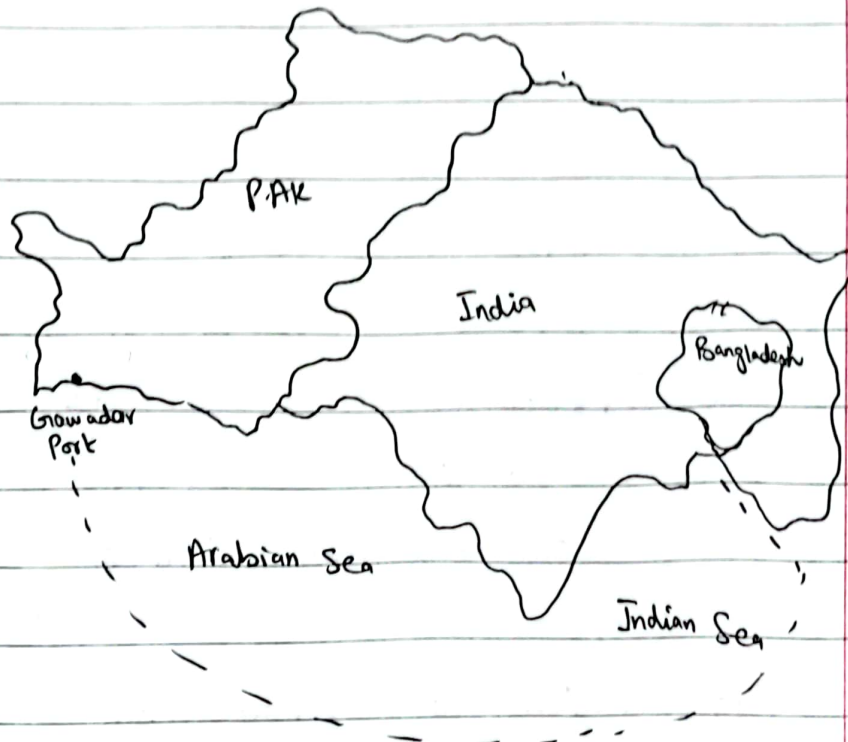 P.AK
India
Bangladesh
Gawadar
Port
Arabian Sea
Indian Sea